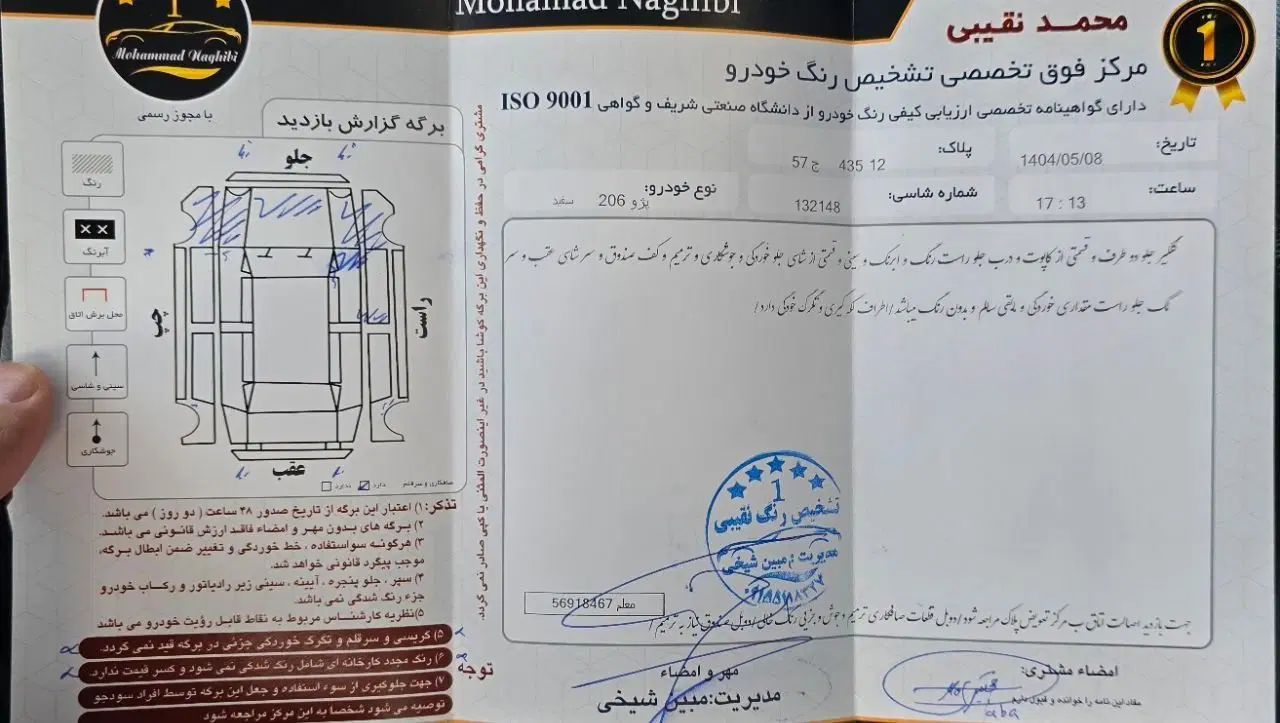 Mohamad Naghibi
محمد نقیبی
مرکز فوق تخصصی تشخیص رنگ خودرو
دارای گواهینامه تخصصی ارزیابی کیفی رنگ خودرو از دانشگاه صنعتی شریف و گواهی ISO 9001
تاریخ: 1404/05/08
پلاک: 12 435 ج 57
ساعت: 17 : 13
شماره شاسی: 132148
نوع خودرو: پژو 206 سفید
گلگیر جلو دو طرف و قسمتی از کاپوت و درب جلو راست رنگ و ابرنگ و سینی و قسمتی از شاسی جلو خوردگی و جوشکاری و ترمیم و کف صندوق و سر شاسی عقب و سر
جلو راست مقداری خوردگی و مابقی سالم و بدون رنگ میباشد
جهت بازدید اصالت اتاق ب مرکز تعویض پلاک مراجعه شود
معلم 56918467
1
تشخیص رنگ نقیبی
مدیریت : مبین شیخی
مهر و امضاء
مدیریت:مبین شیخی
امضاء مشتری:
مفاد این نامه را خوانده و قبول دارم
1
Mohammad Naghibi
با مجوز رسمی
برگه گزارش بازدید
رنگ
آبرنگ
محل برش اتاق
سینی و شاسی
جوشکاری
جلو
چپ
راست
عقب
صافکاری و سرقلم دارد ندارد
مشتری گرامی در حفظ و نگهداری این برگه کوشا باشید در غیر اینصورت المثنی یا کپی صادر نمی گردد.
تذکر: ۱) اعتبار این برگه از تاریخ صدور ۴۸ ساعت ( دو روز ) می باشد.
۲) برگه های بدون مهر و امضاء فاقد ارزش قانونی می باشد.
۳) هرگونه سواستفاده ، خط خوردگی و تغییر ضمن ابطال برگه،
موجب پیگرد قانونی خواهد شد.
۴) سپر ، جلو پنجره ، آیینه ، سینی زیر رادیاتور و رکاب خودرو
جزء رنگ شدگی نمی باشد.
۵)نظریه کارشناس مربوط به نقاط قابل رؤیت خودرو می باشد
۵) گریسی و سرقلم و تگرگ خوردگی جزئی در برگه قید نمی گردد.
توجه
۶) رنگ مجدد کارخانه ای شامل رنگ شدگی نمی شود و کسر قیمت ندارد.
۷) جهت جلوگیری از سوء استفاده و جعل این برگه توسط افراد سودجو
توصیه می شود شخصا به این مرکز مراجعه شود